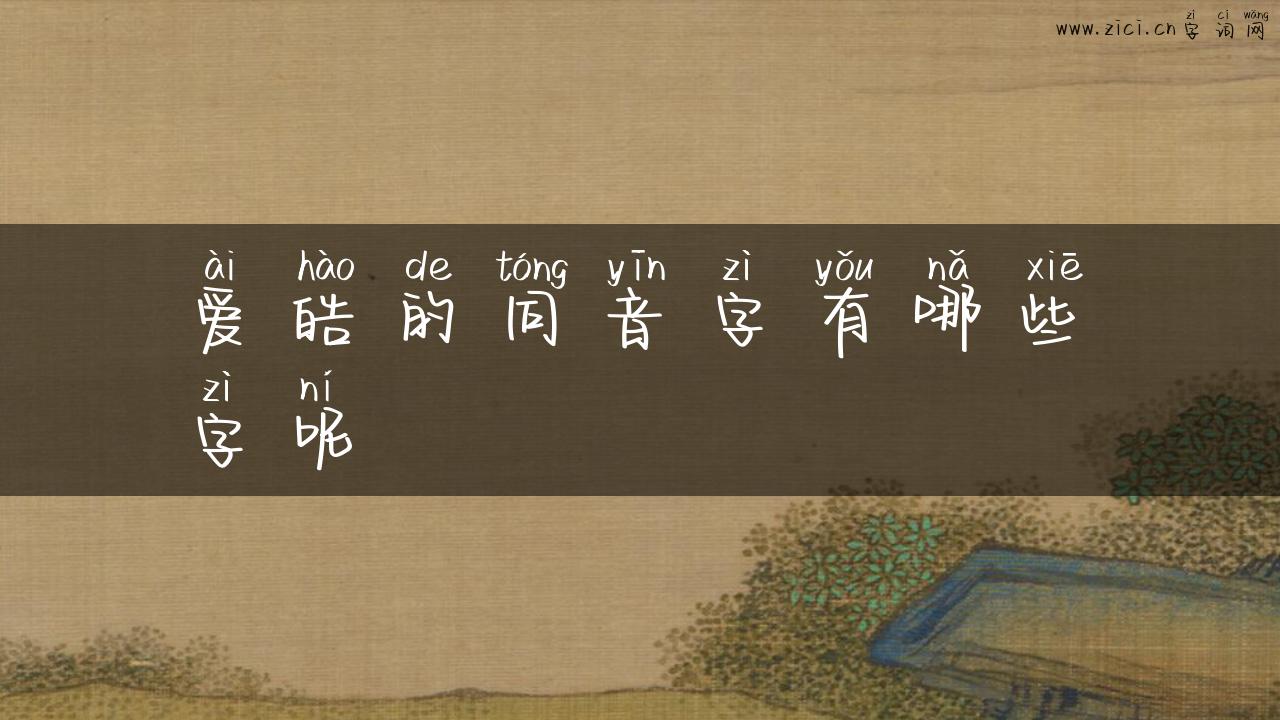 zì cí wǎng
www.zici.cn 字 词 网
ài hào de tóng yīn zì yǒu nǎ xiē
爱 皓 的 同 音 字 有 哪 些
zì ní
字 呢